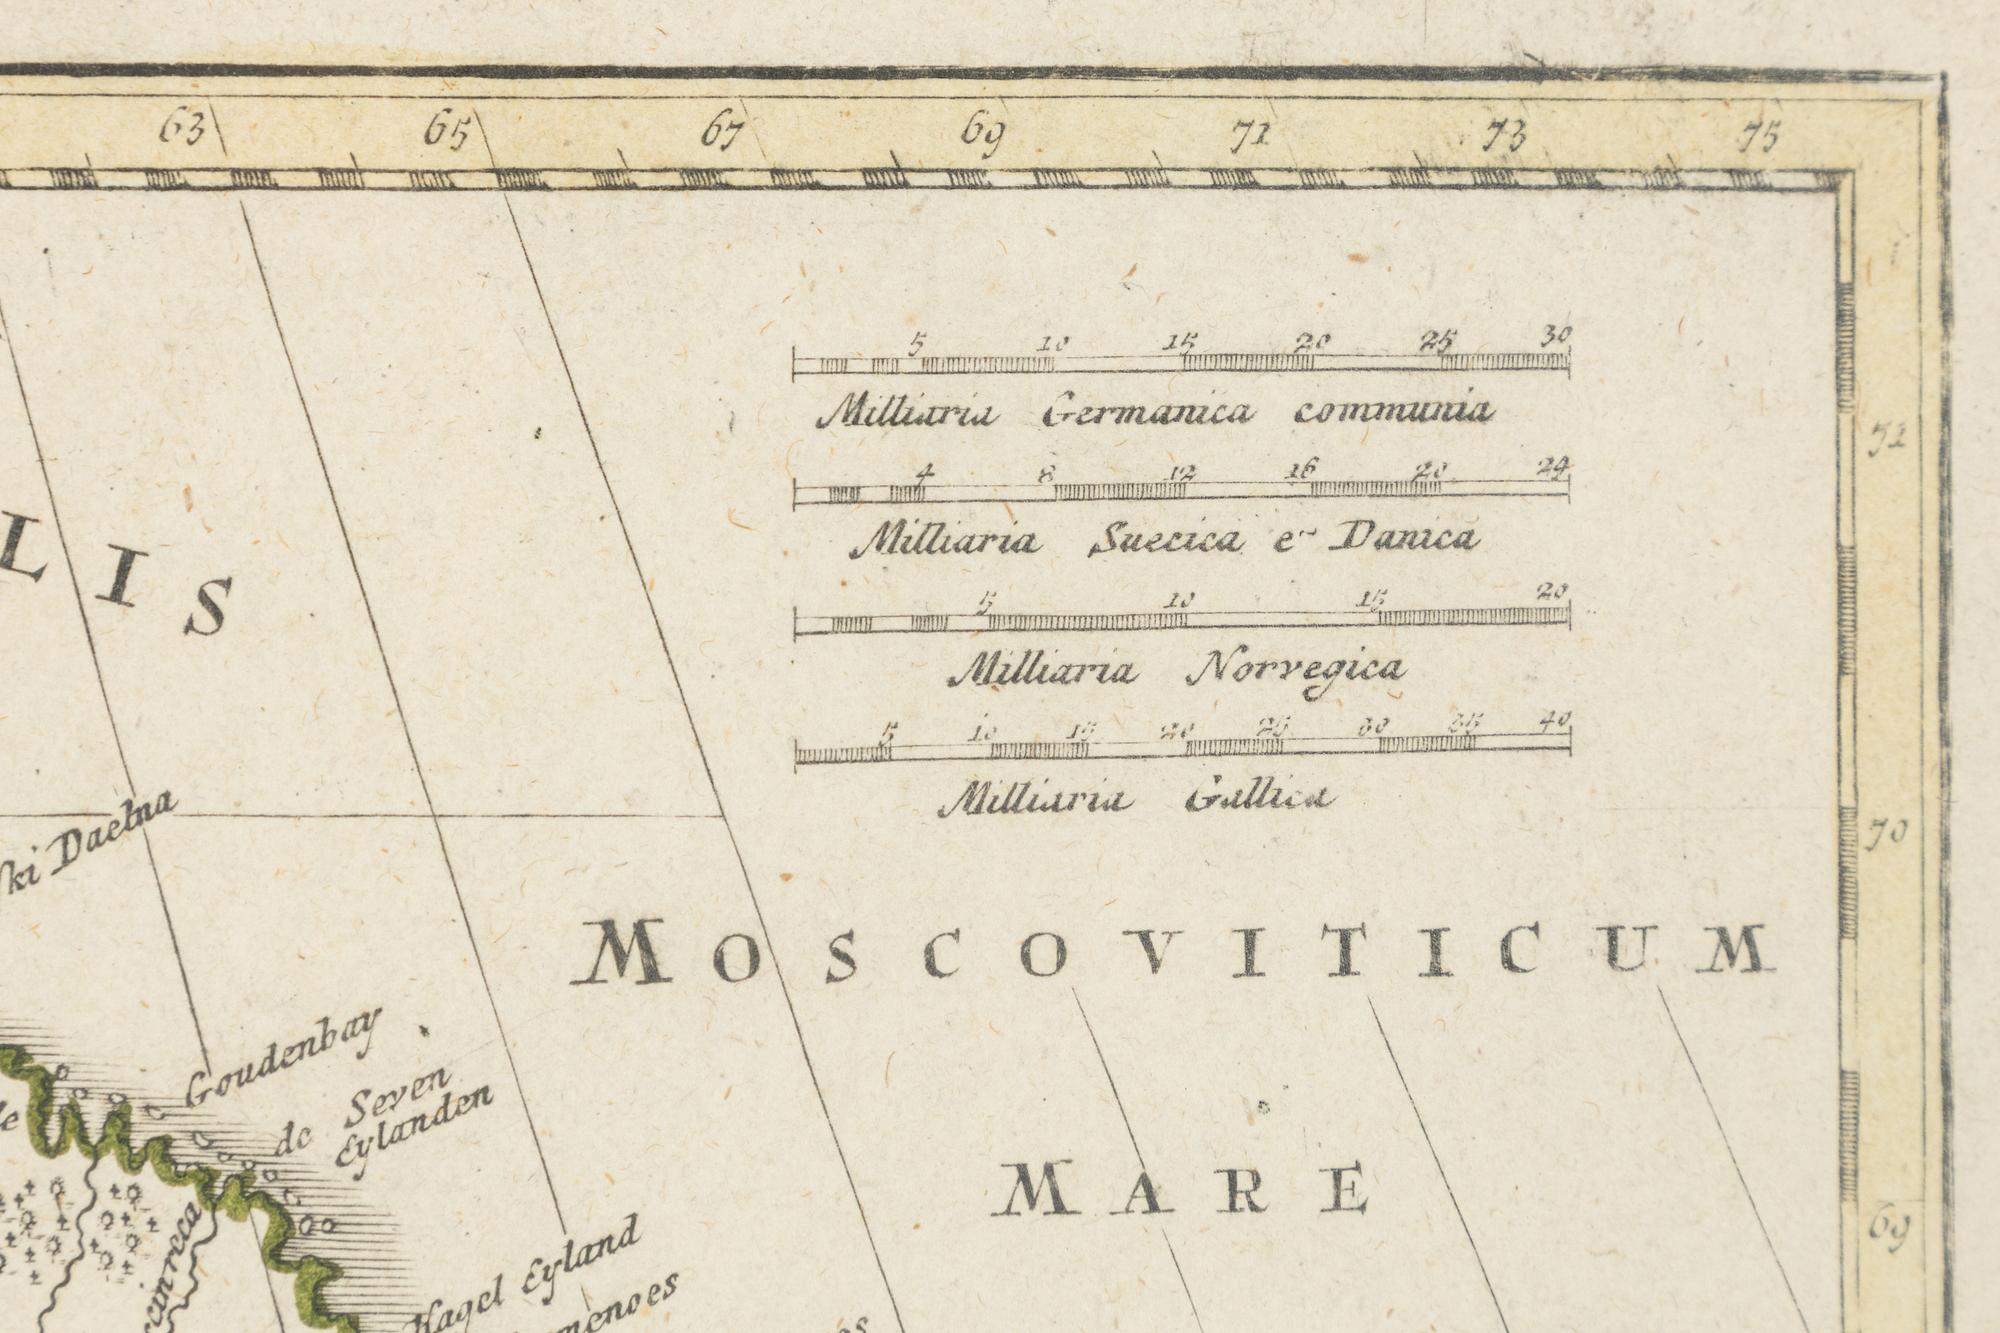 63 65 67 69 71 73 75
5 10 15 20 25 30
Milliaria Germanica communia
71
4 8 12 16 20 24
Milliaria Suecica et Danica
L I S
5 10 15 20
Milliaria Norvegica
5 10 15 20 25 30 35 40
Milliaria Gallica
ki Daelna
70
MOSCOVITICUM
Goudenbay
de Seven
Eylanden
MARE
69
Nagel Eyland